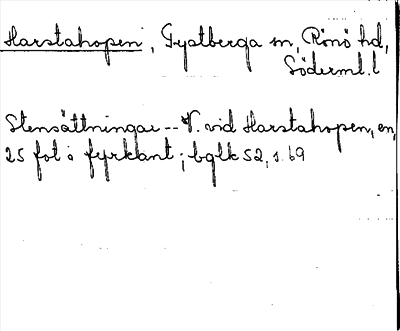 Harstahopen, Gystberga sn, Rönö hd,
Söderml. l
Stensättningar -- V. vid Harstahopen, en,
25 fot i fyrkant; bglk 52, s. 69